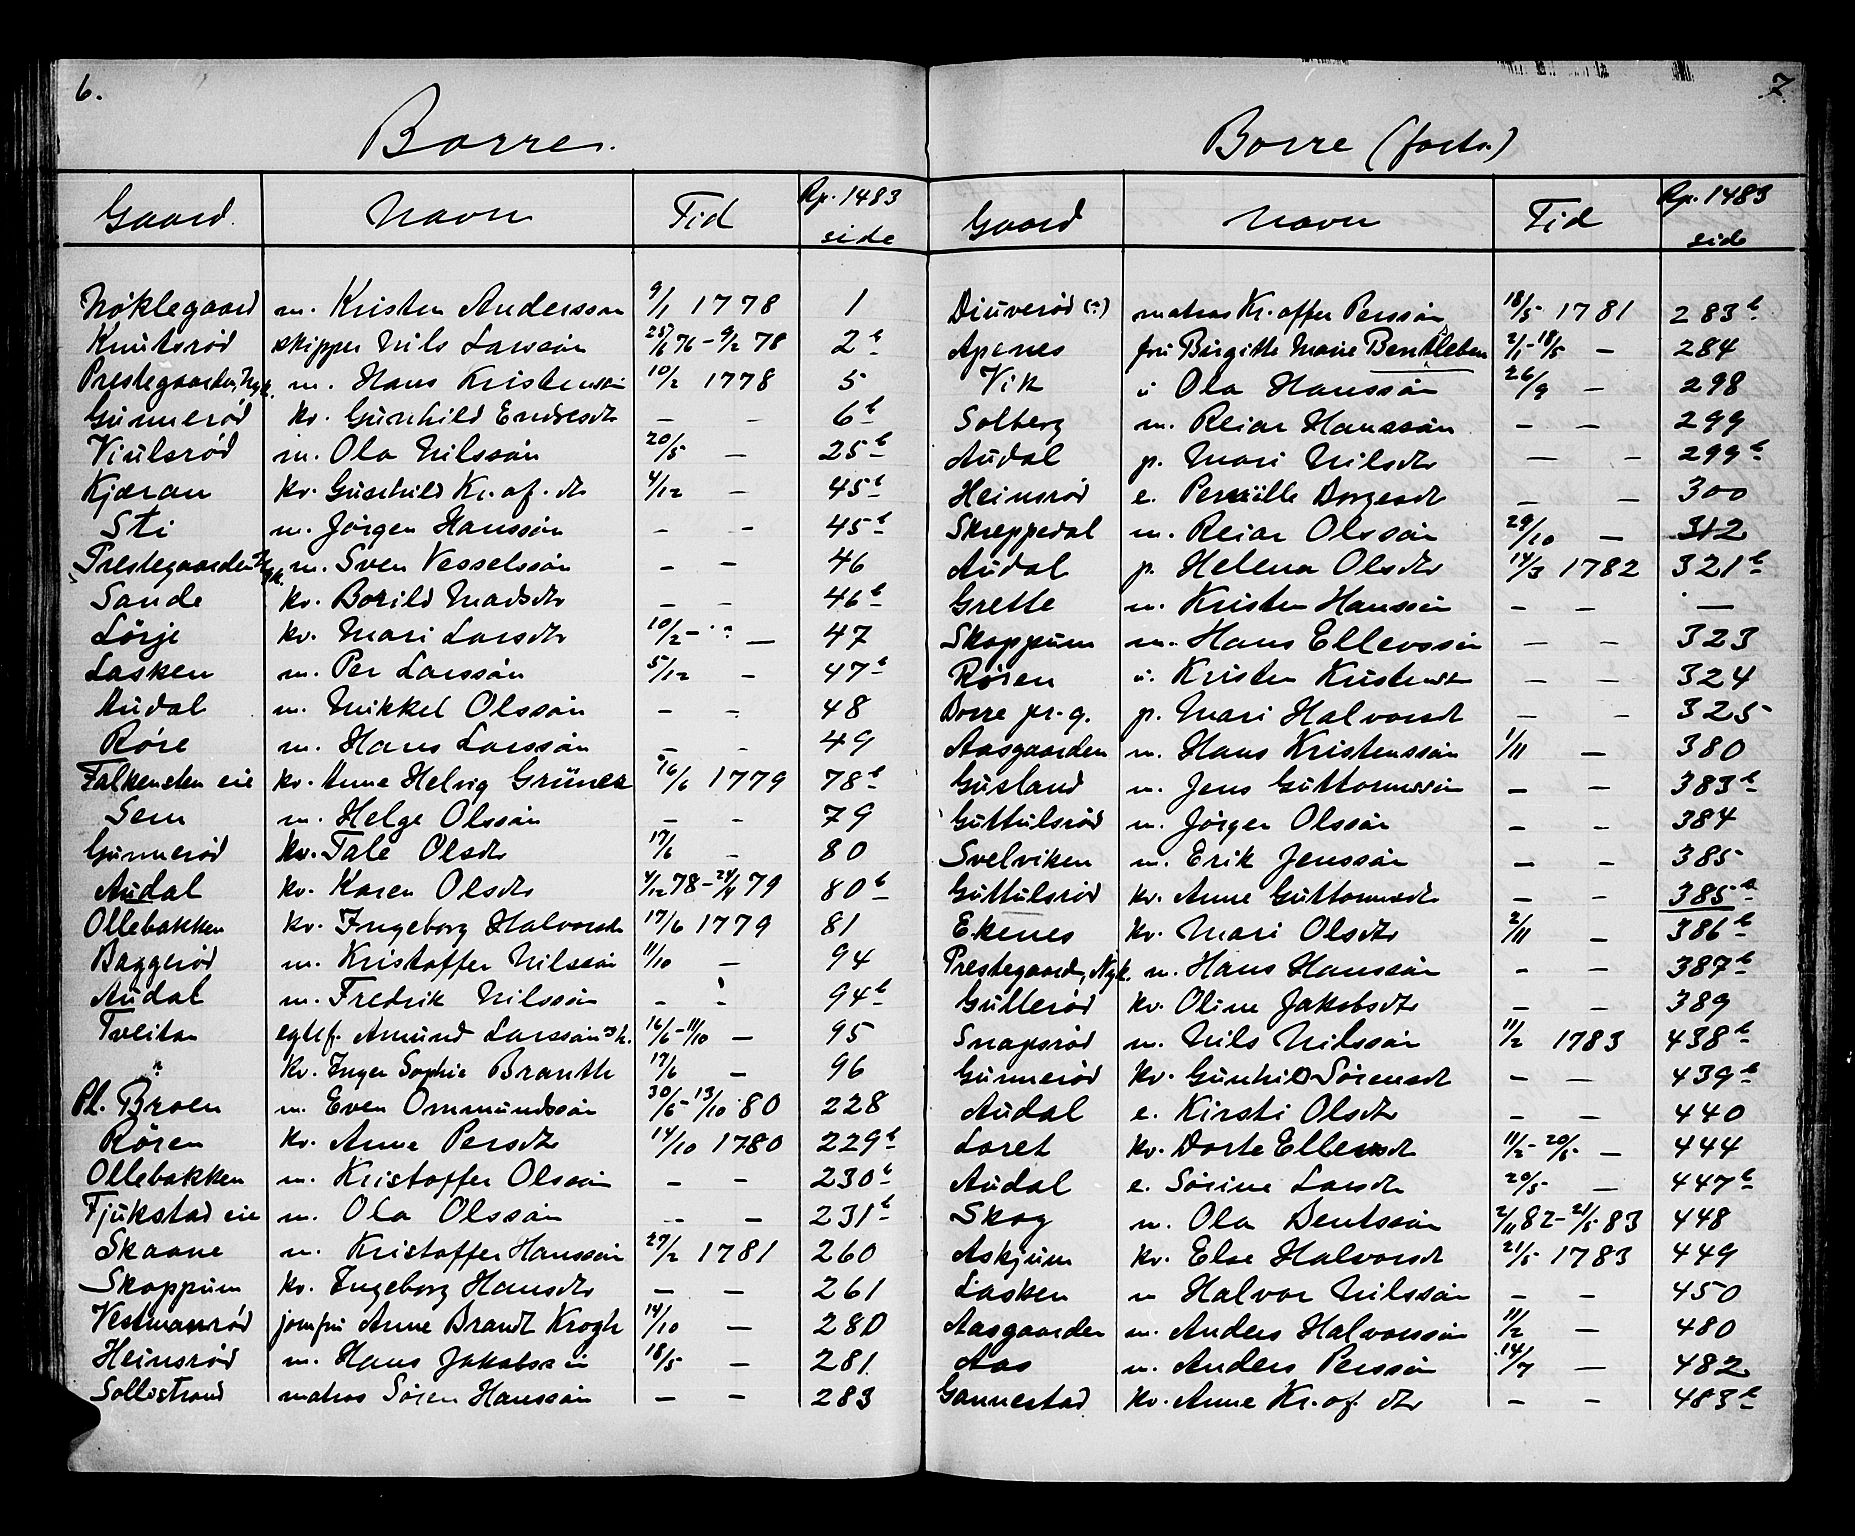 6.
Borre.
Gaard. Navn Tid Rp. 1483 side
Nøklegaard m. Kristen Anderssøn 9/1 1778 1
Knutsrød skipper Nils Larssøn 25/6 76 - 9/2 78 2b
Prestegaarden, Nyk. m. Hans Kristenssøn 10/2 1778 5
Gunnerød kv. Gunhild Endresdtr - - 6b
Viulsrød m. Ola Nilssøn 20/5 - 25b
Kjæran kv. Gunhild Kr.of.dtr 4/12 - 45b
Sti m. Jørgen Hanssøn - - 45b
Prestegaarden Nyk. m. Sven Vesselssøn - - 46
Sande kv. Borild Madsdtr - - 46b
Lørje kv. Mari Larsdtr 10/2 - ? - 47
Lasken m. Per Larssøn 5/12 - 47b
Audal m. Mikkel Olssøn - - 48
Røre m. Hans Larssøn - - 49
Falkensten eie kv. Anne Helvig Grüner 16/6 1779 78b
Sem m. Helge Olssøn - - 79
Gunnerød kv. Tale Olsdtr 17/6 - 80
Audal kv. Karen Olsdtr 4/12 78 - 24/4 79 80b
Ollebakken kv. Ingeborg Halvorsdtr 17/6 1779 81
Baggerød m. Kristoffer Nilssøn 11/10 - 94
Audal m. Fredrik Nilssøn - - 94b
Tveiten egtef. Amund Larssøn &h. 16/6 - 11/10 - 95
" kv. Inger Sophie Brauth 17/6 - 96
Pl. Broen m. Even Ommundssøn 30/6 - 13/10 80 228
Røren kv. Anne Persdtr 14/10 1780 229b
Ollebakken m. Kristoffer Olssøn - - 230b
Fjukstad eie m. Ola Olssøn - - 231b
Skaane m. Kristoffer Hanssøn 27/2 1781 260
Skoppum kv. Ingeborg Hansdtr - - 261
Vestmanrød jomfru Anne Brandt Krogh 14/10 - 280
Heinsrød m. Hans Jakobssøn 18/5 - 281
Sollistrand matros Søren Hanssøn - - 283
7.
Borre (forts.)
Gaard Navn Tid Rp. 1483 side
Diuverød (?) matros Kr.offer Perssøn 18/5 1781 283b
Apenes fru Birgitte Marie Bentzleben 2/1 - 18/5 - 284
Vik u Ola Hanssøn 26/9 - 298
Solberg m. Reiar Hanssøn - - 299
Audal p. Mari Nilsdtr - - 299b
Heinsrød e. Pernille Borgesdtr - - 300
Skreppedal m. Reiar Olssøn 29/10 - 312
Audal p. Helena Olsdtr 14/3 1782 321b
Grette m. Kristen Hanssøn - - -
Skoppum m. Hans Ellevssøn - - 323
Røren u. Kristen Kristenssøn - - 324
Borre pr.g. p. Mari Halvorsdtr - - 325
Aasgaarden m. Hans Kristenssøn 1/11 - 380
Gusland m. Jens Guttormssøn - - 383b
Guttulsrød m. Jørgen Olssøn - - 384
Svelviken m. Erik Jenssøn - - 385
Guttulsrød kv. Anne Guttormsdtr - - 385b
Ekenes kv. Mari Olsdtr 2/11 - 386b
Prestegaarden, Nyk. m. Hans Hanssøn - - 387b
Gullerød kv. Oline Jakobsdtr - - 389
Snapsrød m. Nils Nilssøn 11/2 1783 438b
Gunnerød kv. Gunhild Sørensdtr - - 439b
Audal e. Kirsti Olsdtr - - 440
Loret kv. Dorte Ellensdtr 11/2 - 20/5 - 444
Audal e. Sørine Larsdtr 20/5 - 447b
Skog m. Ola Bentssøn 2/11 82 - 21/5 83 448
Askjum kv. Else Halvorsdtr 21/5 1783 449
Lasken m Halvor Nilssøn - - 450
Aasgaarden m. Anders Halvorssøn 11/2 - 480
Aas m. Anders Perssøn 14/7 - 482
Gannestad kv. Anne Kr.of.dtr - - 483b